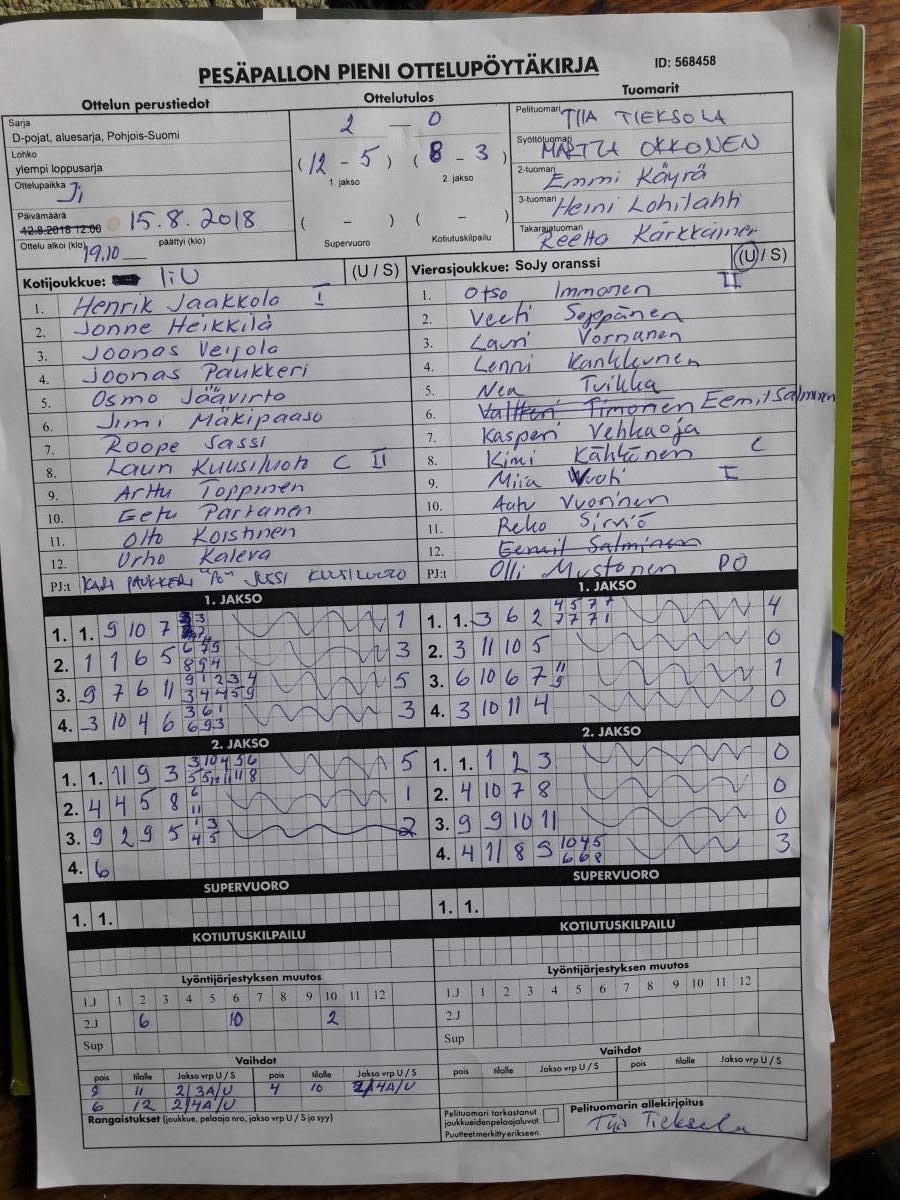 PESÄPALLON PIENI OTTELUPÖYTÄKIRJA
ID: 568458
Ottelun perustiedot
Ottelutulos
Tuomarit
Sarja
D-pojat, aluesarja, Pohjois-Suomi
Lohko
ylempi loppusarja
Ottelupaikka Ji
Päivämäärä
12.8.2018 12:00 15.8.2018
Ottelu alkoi (klo) 19.10 päättyi (klo)
2 — 0
(12 - 5) (8 - 3)
1. jakso 2. jakso
( - ) ( - )
Supervuoro Kotiutuskilpailu
Pelituomari TIIA TIEKSOLA
Syöttötuomari MARTTA OKKONEN
2-tuomari Emmi Käyrä
3-tuomari Heini Lohilahti
Takarajatuomari Reetta Kärkkäinen
Kotijoukkue: IiU (U / S)
1. Henrik Jaakkola I
2. Jonne Heikkilä
3. Joonas Veijola
4. Joonas Paukkeri
5. Osmo Jäävirto
6. Jimi Mäkipaaso
7. Roope Sassi
8. Lauri Kuusiluoto C II
9. Arttu Toppinen
10. Eetu Partanen
11. Otto Koistinen
12. Urho Kaleva
PJ:t KARI PAUKKERI "PO" JUSSI KUUSILUOTO
Vierasjoukkue: SoJy oranssi (U / S)
1. Otso Immonen II
2. Veeti Seppänen
3. Lauri Vornanen
4. Lenni Kankkunen
5. Nea Tvikka
6. Valtteri Timonen Eemil Salminen
7. Kasperi Vehkaoja
8. Kimi Kähtönen C
9. Miia Vuoti I
10. Aatu Vuorinen
11. Reko Sirviö
12. Eemil Salminen
PJ:t Olli Mustonen PO
1. JAKSO
1. 1. 9 10 7 1
2. 1 1 6 5 3
3. 9 7 6 11 9 1 2 3 4 5
3 4 4 5 9
4. 3 10 4 6 3 6 1 3
6 9 3
1. JAKSO
1. 1. 3 6 2 4 5 7 7 4
7 7 7 1
2. 3 11 10 5 0
3. 6 10 6 7 11 1
9
4. 3 10 11 4 0
2. JAKSO
1. 1. 11 9 3 3 10 4 5 6 5
5 5 11 11 8
2. 4 4 5 8 6 1
11
3. 9 2 9 5 1 3 2
4 5
4. 6
2. JAKSO
1. 1. 1 2 3 0
2. 4 10 7 8 0
3. 9 9 10 11 0
4. 4 11 8 9 10 4 5 3
6 6 8
SUPERVUORO
1. 1.
SUPERVUORO
1. 1.
KOTIUTUSKILPAILU
KOTIUTUSKILPAILU
Lyöntijärjestyksen muutos
1.J 1 2 3 4 5 6 7 8 9 10 11 12
2.J 6 10 2
Sup
Lyöntijärjestyksen muutos
1.J 1 2 3 4 5 6 7 8 9 10 11 12
2.J
Sup
Vaihdot
pois tilalle Jakso vrp U / S pois tilalle Jakso vrp U / S
9 11 2/3A/U 4 10 2/4A/U
6 12 2/4A/U
Vaihdot
pois tilalle Jakso vrp U / S pois tilalle Jakso vrp U / S
Rangaistukset (joukkue, pelaaja nro, jakso vrp U / S ja syy)
Pelituomari tarkastanut
joukkueiden pelaajaluvat.
Puutteet merkitty erikseen.
Pelituomarin allekirjoitus
Tiia Tieksola